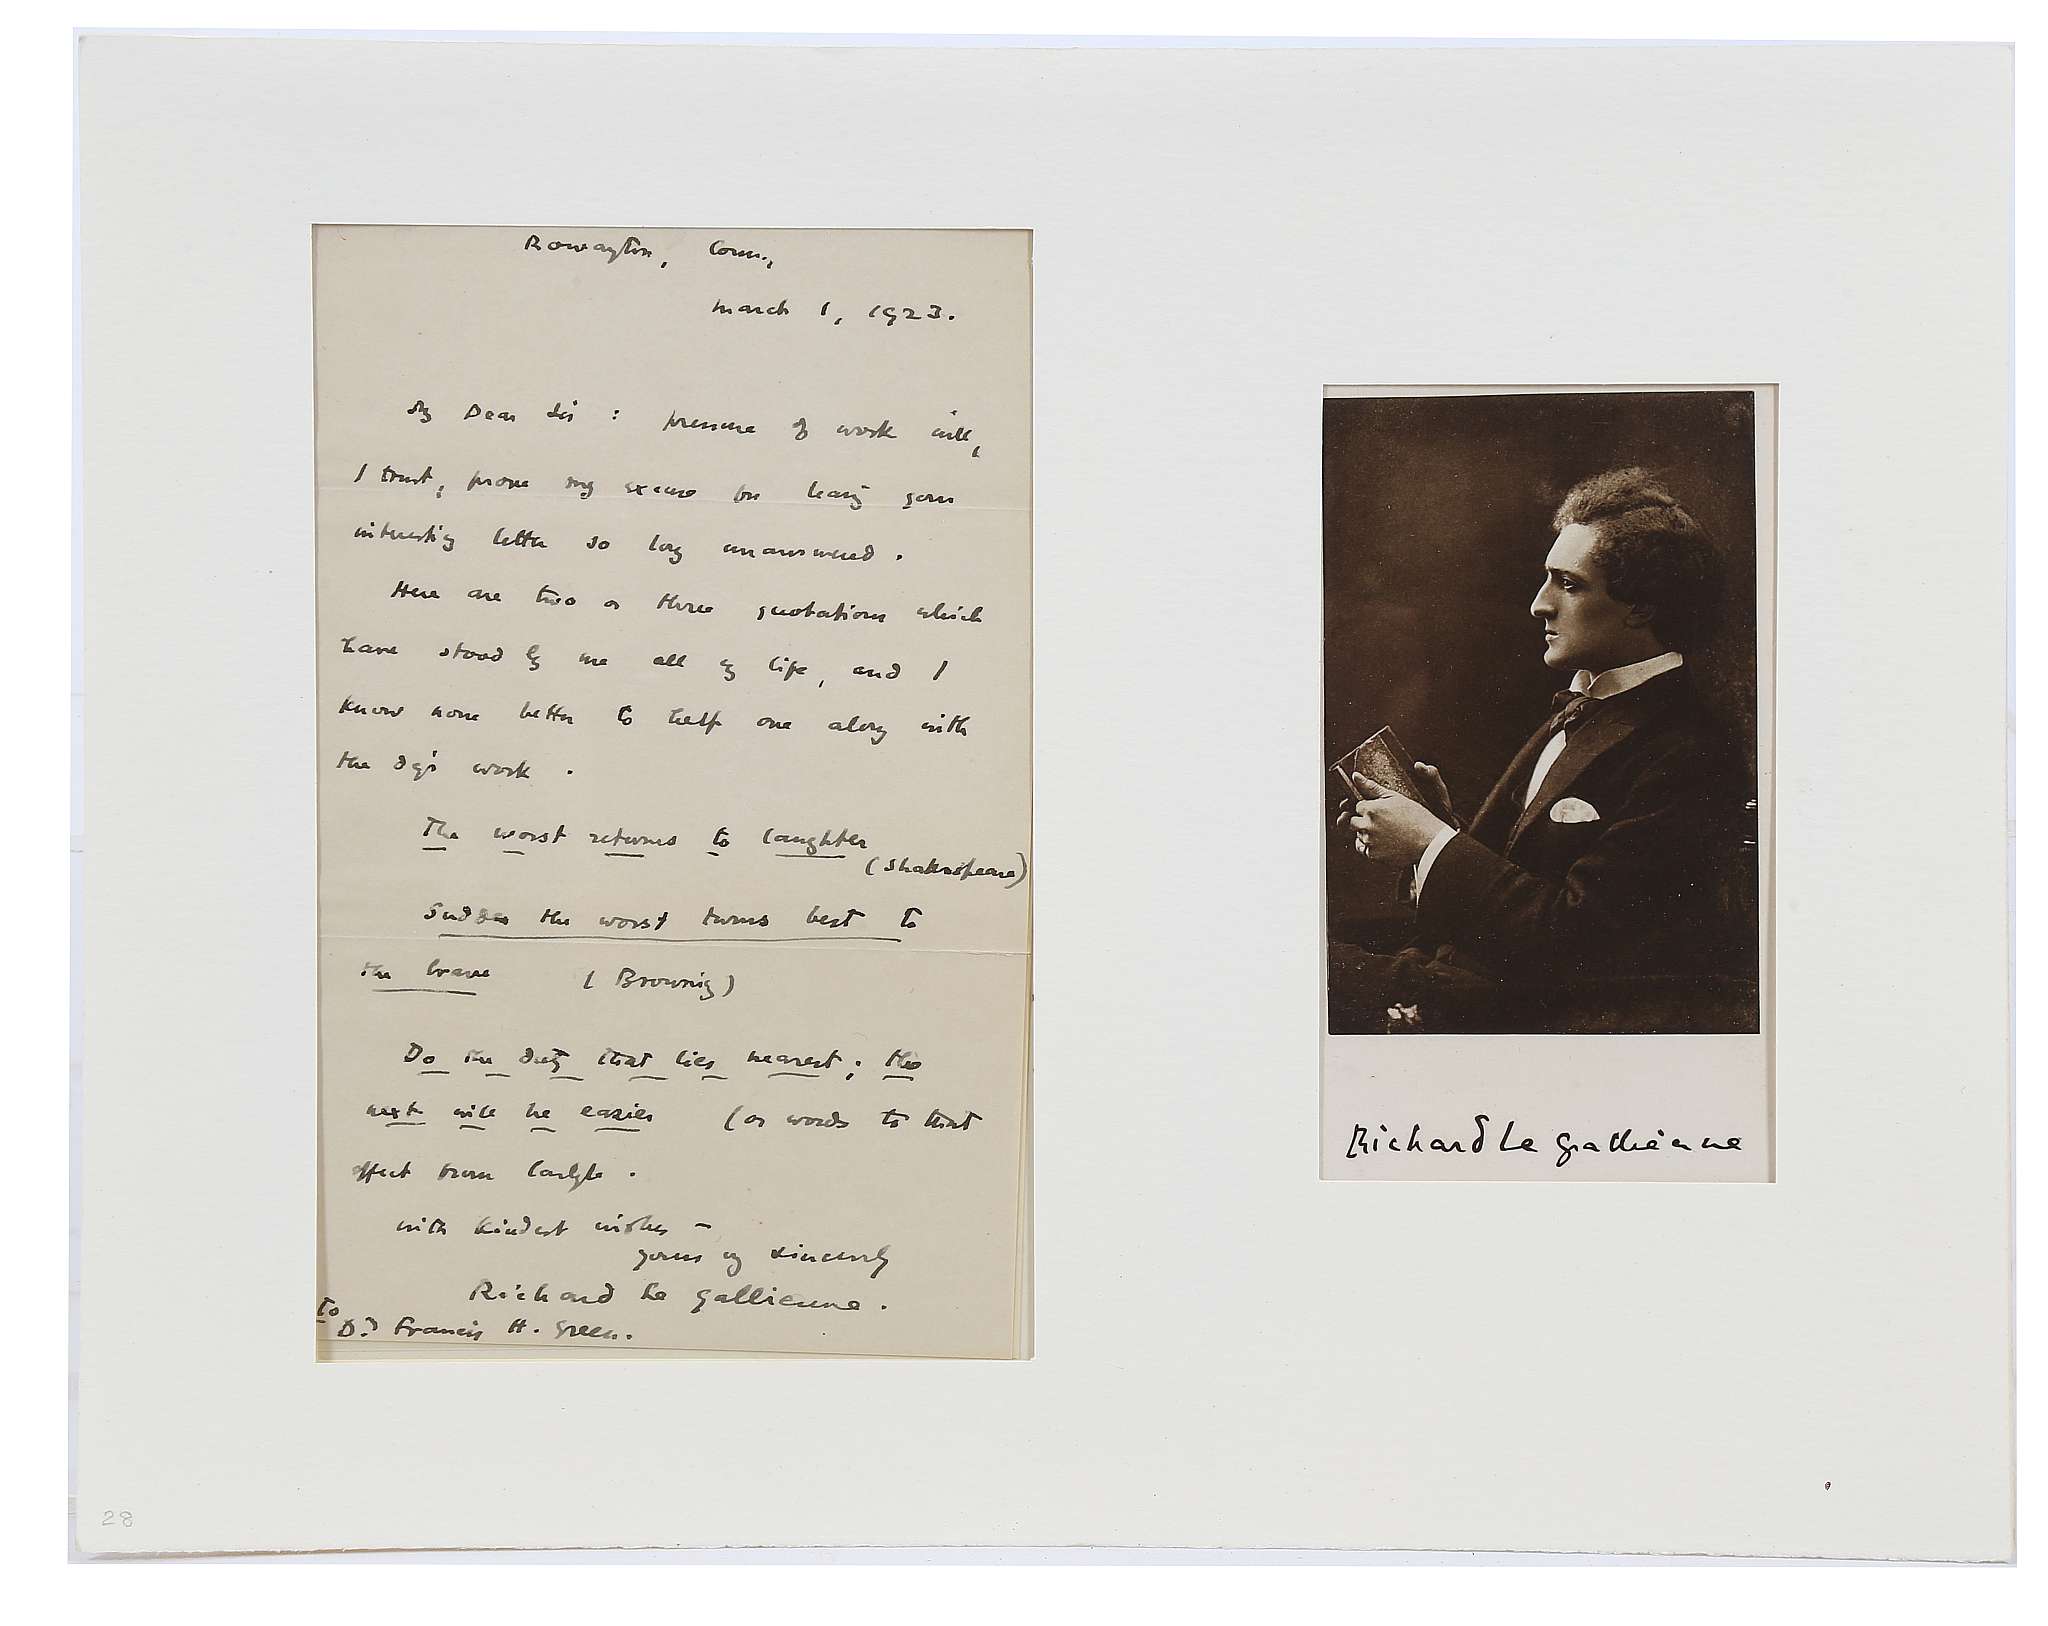 Rowayton, Conn.,
March 1, 1923.
My Dear Sir : pressure of work will,
I trust, prove my excuse for leaving your
interesting letter so long unanswered .
Here are two or three quotations which
have stood by me all my life, and I
know none better to help one along with
the day's work .
The worst returns to laughter
(Shakespeare)
Sudden the worst turns best to
the brave ( Browning )
Do the duty that lies nearest ; the
next will be easier (or words to that
effect from Carlyle .
with kindest wishes —
yours very sincerely
Richard Le Gallienne .
To
Dr Francis H. Green.
Richard Le Gallienne
28